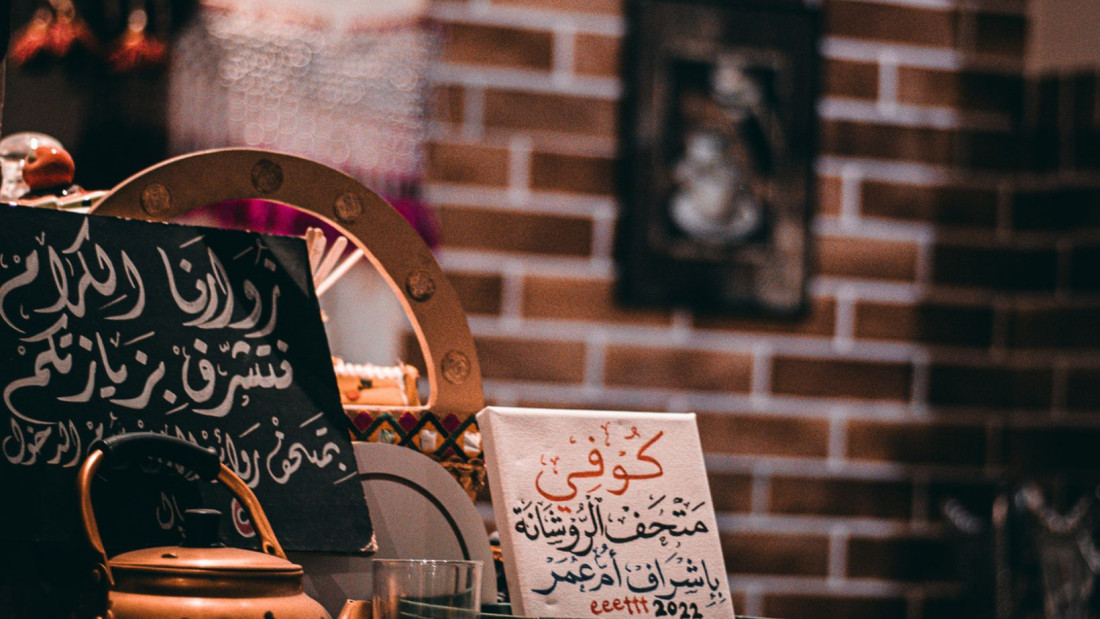 زوارنا الكرام
نتشرّف بزيارتكم
بمتحف روائع الدخول
كُوفِي
مَتْحَف الرُّوشَانَة
بإِشراف أم عُمَر
eeettt 2022